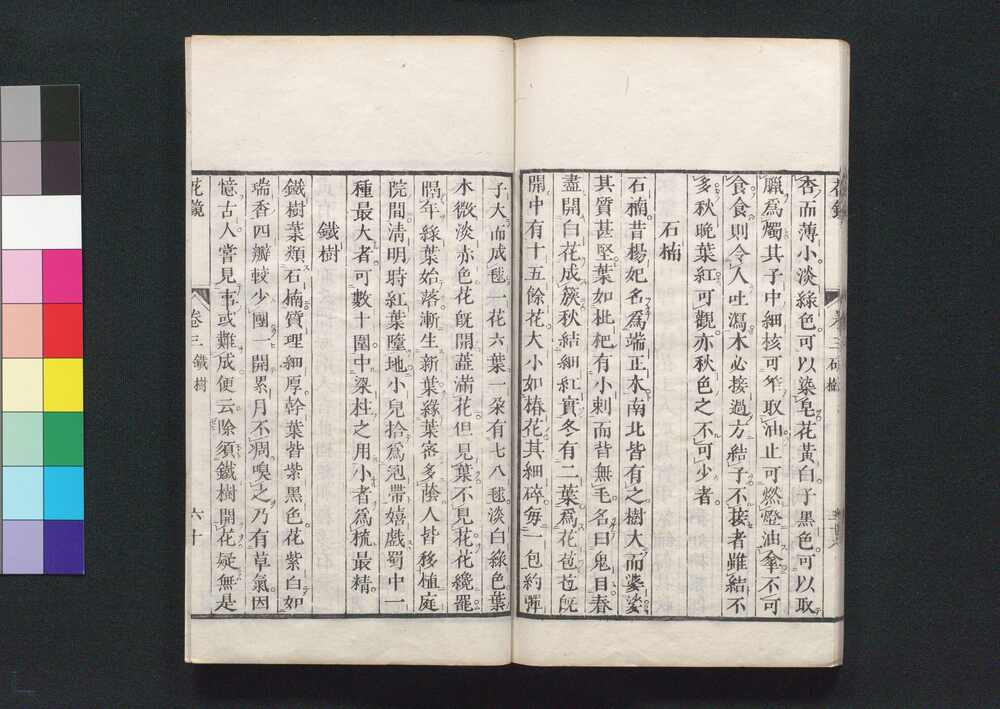 花鏡 卷三 石楠
杏而薄小淡綠色可以染皂花黃白子黑色可以取
臘爲燭其子中細核可笮取油止可燃燈油傘不可
食食則令人吐瀉木必接過方結子不接者雖結不
多秋晚葉紅可觀亦秋色之不可少者
石楠
石楠昔楊妃名爲端正木南北皆有之樹大而婆娑
其質甚堅葉如枇杷有小刺而背無毛名曰鬼目春
盡開白花成簇秋結細紅實冬有二葉爲花苞苞旣
開中有十五餘花大小如椿花其細碎每一包約彈
子大而成毬一花六葉一朶有七八毬淡白綠色葉
木微淡赤色花旣開蘂滿花但見葉不見花花纔罷
隔年綠葉始落漸生新葉綠葉審多蔭人皆移植庭
院間淸明時紅葉墮地小兒拾爲冠帶嬉戲蜀中一
種最大者可數十圍中梁柱之用小者爲梳最精
鐵樹
鐵樹葉類石楠質理細厚幹葉皆紫黑色花紫白如
瑞香四瓣較少團一開累月不凋嗅之乃有草氣因
憶古人嘗見事或難成便云除須鐵樹開花疑無是
花鏡 卷三 鐵樹 六十